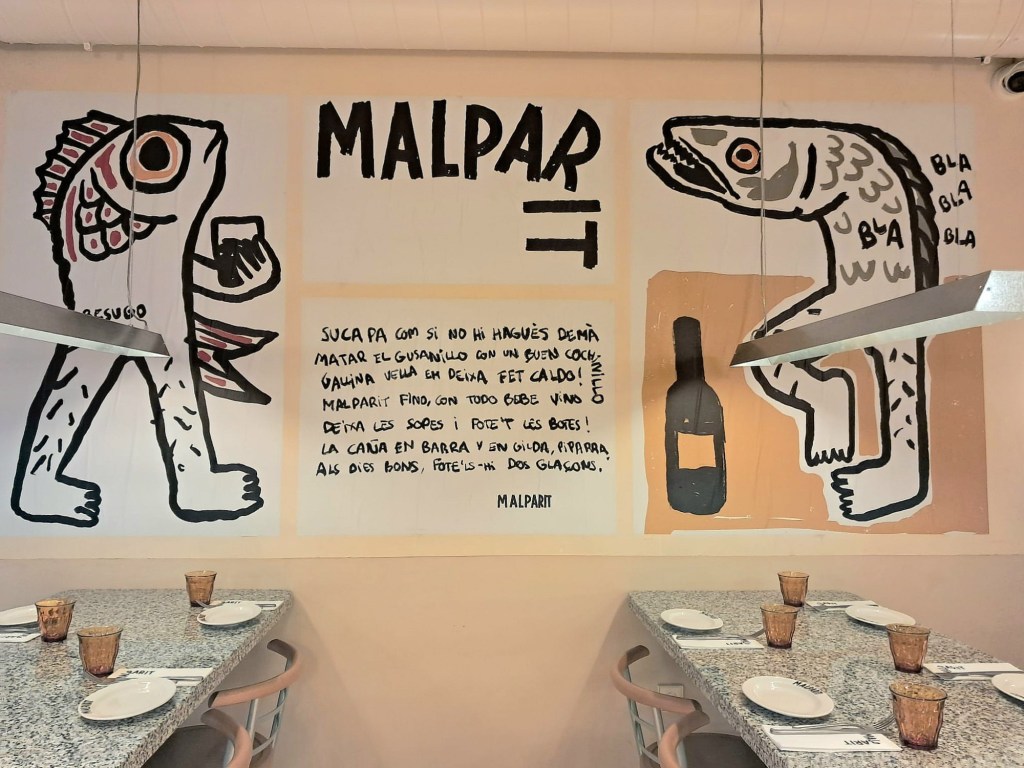 MALPAR
IT
BESUGO
SUCA PA COM SI NO HI HAGUÈS DEMÀ
MATAR EL GUSANILLO CON UN BUEN COCHINILLO
GALLINA VELLA EM DEIXA FET CALDO!
MALPARIT FINO, CON TODO BEBE VINO
DEIXA LES SOPES I FOTE'T LES BOTES!
LA CAÑA EN BARRA Y EN GILDA, PIPARRA
ALS DIES BONS, FOTE'LS-HI DOS GLAÇONS.
MALPARIT
BLA
BLA
BLA
BLA
ARIT
ARIT